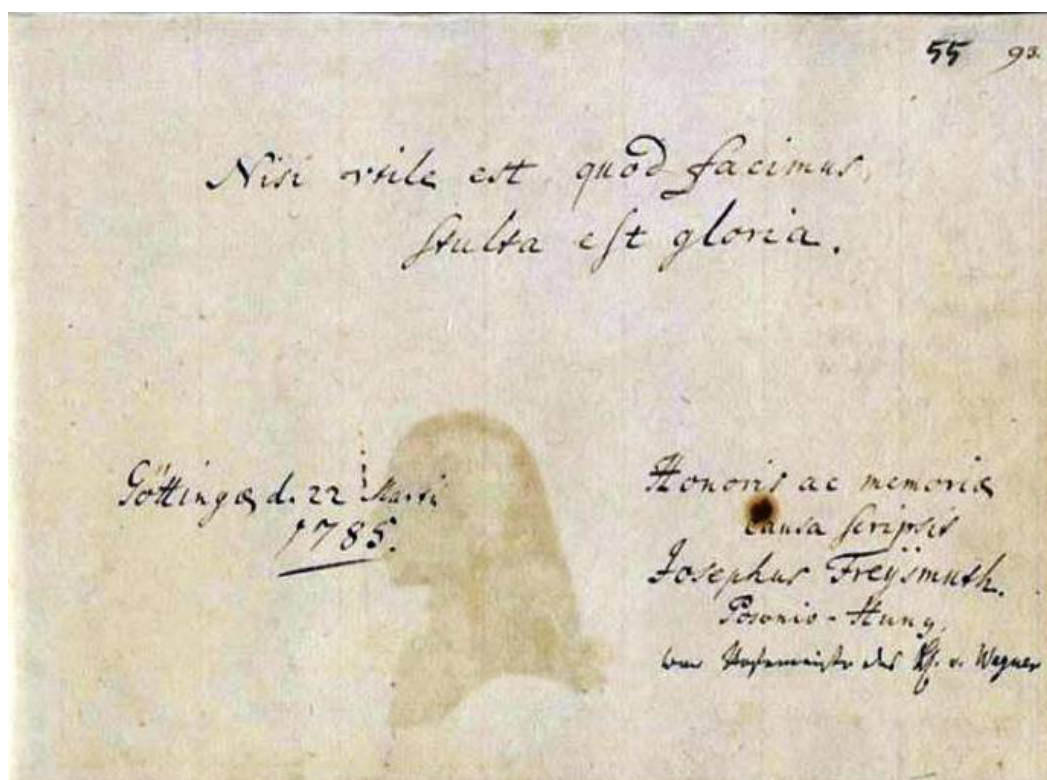 55 93.
Nisi vtile est, quod facimus,
stulta est gloria.
Göttingæ d. 22 Martii
1785.
Honoris ac memoriæ
causa scripsit
Josephus Freÿsmuth.
Posonio-Hung.
war Hofmeister des v. Wagner